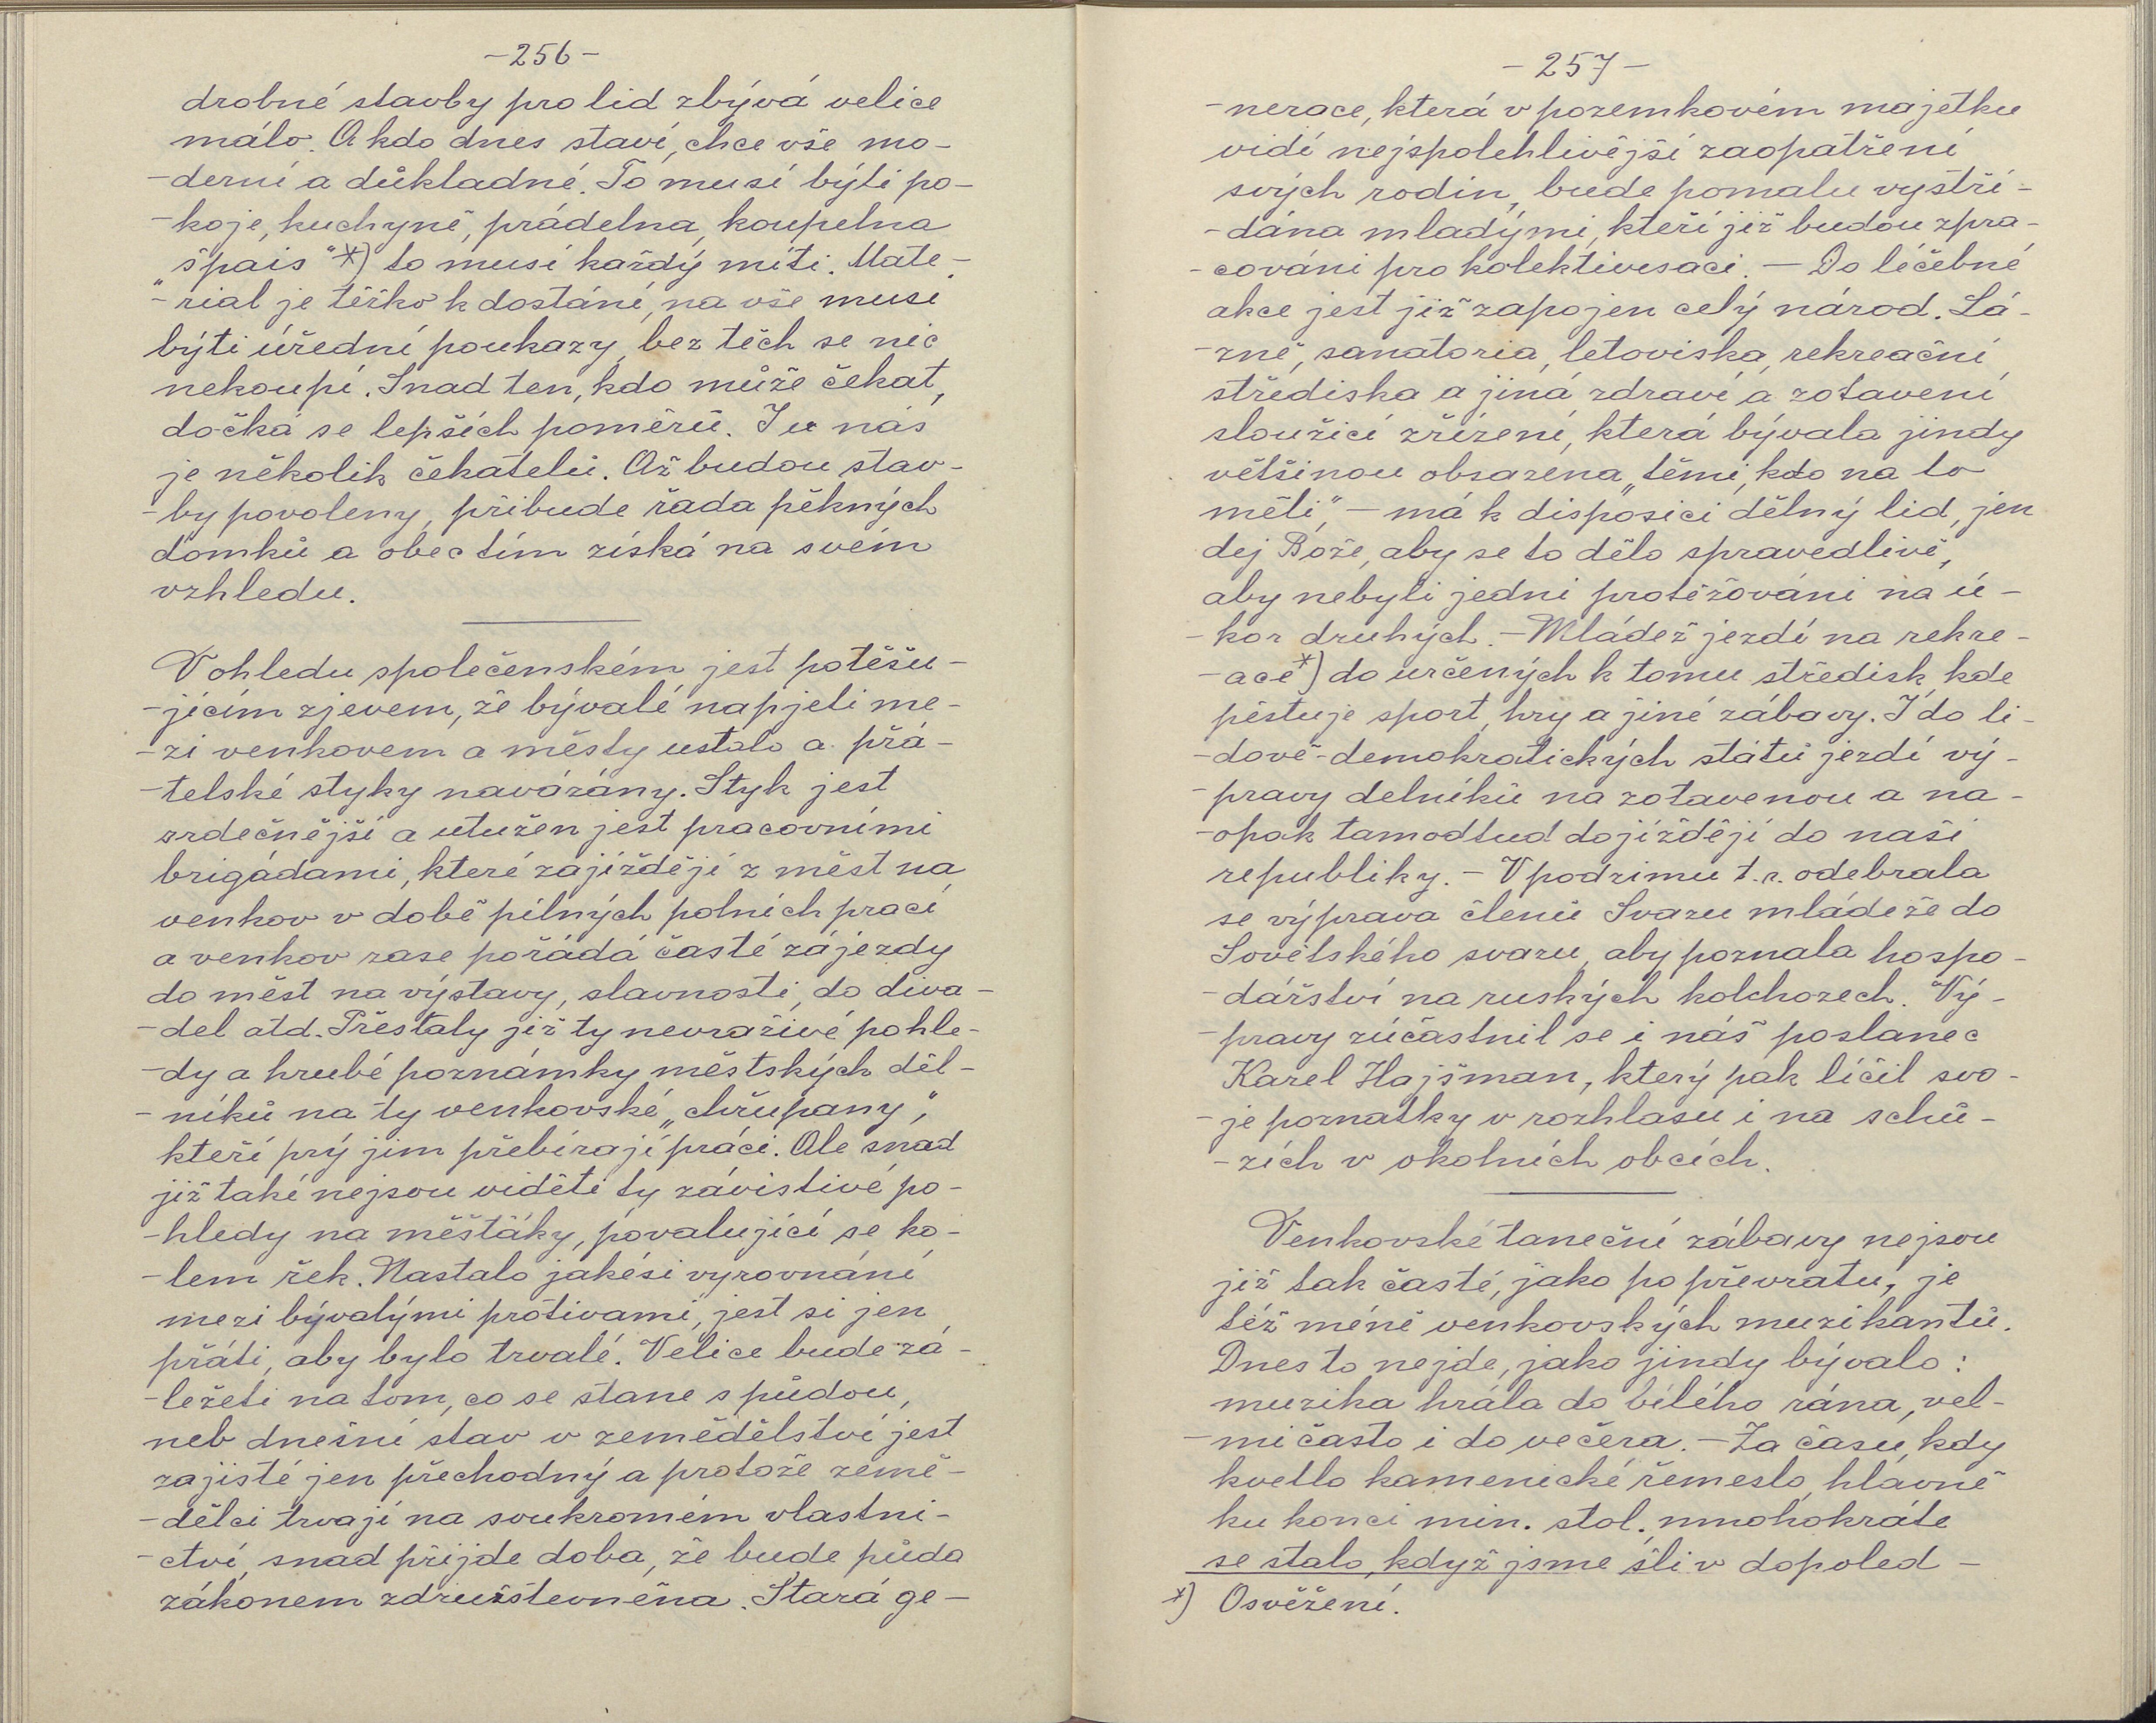 -256-
drobné stavby pro lid zbývá velice
málo. A kdo dnes staví, chce vše mo-
-derní a důkladné. To musí býti po-
-koje, kuchyně, prádelna, koupelna
"špais" *) to musí každý míti. Mate-
-rial je těžko k dostání, na vše musí
býti úřední poukazy, bez těch se nic
nekoupí. Snad ten, kdo může čekat,
dočká se lepších poměrů. I u nás
je několik čekatelů. Až budou stav-
-by povoleny, přibude řada pěkných
domků a obec tím získá na svém
vzhledu.
V ohledu společenském jest potěšu-
-jícím zjevem, že bývalé napjetí me-
-zi venkovem a městy ustalo a přá-
-telské styky navázány. Styk jest
srdečnější a utužen jest pracovními
brigádami, které zajíždějí z měst na
venkov v době pilných polních prací
a venkov zase pořádá časté zájezdy
do měst na výstavy, slavnosti, do diva-
-del atd. Přestaly již ty nevraživé pohle-
-dy a hrubé poznámky městských děl-
-níků na ty venkovské „chřupany",
kteří prý jim přebírají práci. Ale snad
již také nejsou viděti ty závistivé po-
-hledy na měšťáky, povalující se ko-
-lem řek. Nastalo jakési vyrovnání
mezi bývalými protivami, jest si jen
přáti, aby bylo trvalé. Velice bude zá-
-ležeti na tom, co se stane s půdou,
neb dnešní stav v zemědělství jest
zajisté jen přechodný a protože země-
-dělci trvají na soukromém vlastni-
-ctví, snad přijde doba, že bude půda
zákonem združstevněna. Stará ge-
-257-
-nerace, která v pozemkovém majetku
vidí nejspolehlivější zaopatření
svých rodin, bude pomalu vystří-
-dána mladými, kteří již budou zpra-
-cováni pro kolektivisaci. — Do léčebné
akce jest již zapojen celý národ. Lá-
-zně, sanatoria, letoviska, rekreační
střediska a jiná zdraví a zotavení
sloužící zřízení, která bývala jindy
většinou obsazena „těmi, kdo na to
měli", — má k disposici dělný lid, jen
dej Bože, aby se to dělo spravedlivě,
aby nebyli jedni protěžováni na ú-
-kor druhých. — Mládež jezdí na rekre-
-ace *) do určených k tomu středisk, kde
pěstuje sport, hry a jiné zábavy. I do li-
-dově-demokratických států jezdí vý-
-pravy delníků na zotavenou a na-
-opak tamodtud dojíždějí do naší
republiky. — V podzimu t.r. odebrala
se výprava členů Svazu mládeže do
Sovětského svazu, aby poznala hospo-
-dářství na ruských kolchozech. Vý-
-pravy zúčastnil se i náš poslanec
Karel Hajšman, který pak líčil svo-
-je poznatky v rozhlasu i na schů-
-zích v okolních obcích.
Venkovské taneční zábavy nejsou
již tak časté, jako po převratu, je
též méně venkovských muzikantů.
Dnes to nejde, jako jindy bývalo:
muzika hrála do bílého rána, vel-
-mi často i do večera. — Za času, kdy
kvetlo kamenické řemeslo, hlavně
ku konci min. stol. mnohokráte
se stalo, když jsme šli v dopoled-
*) Osvěžení.